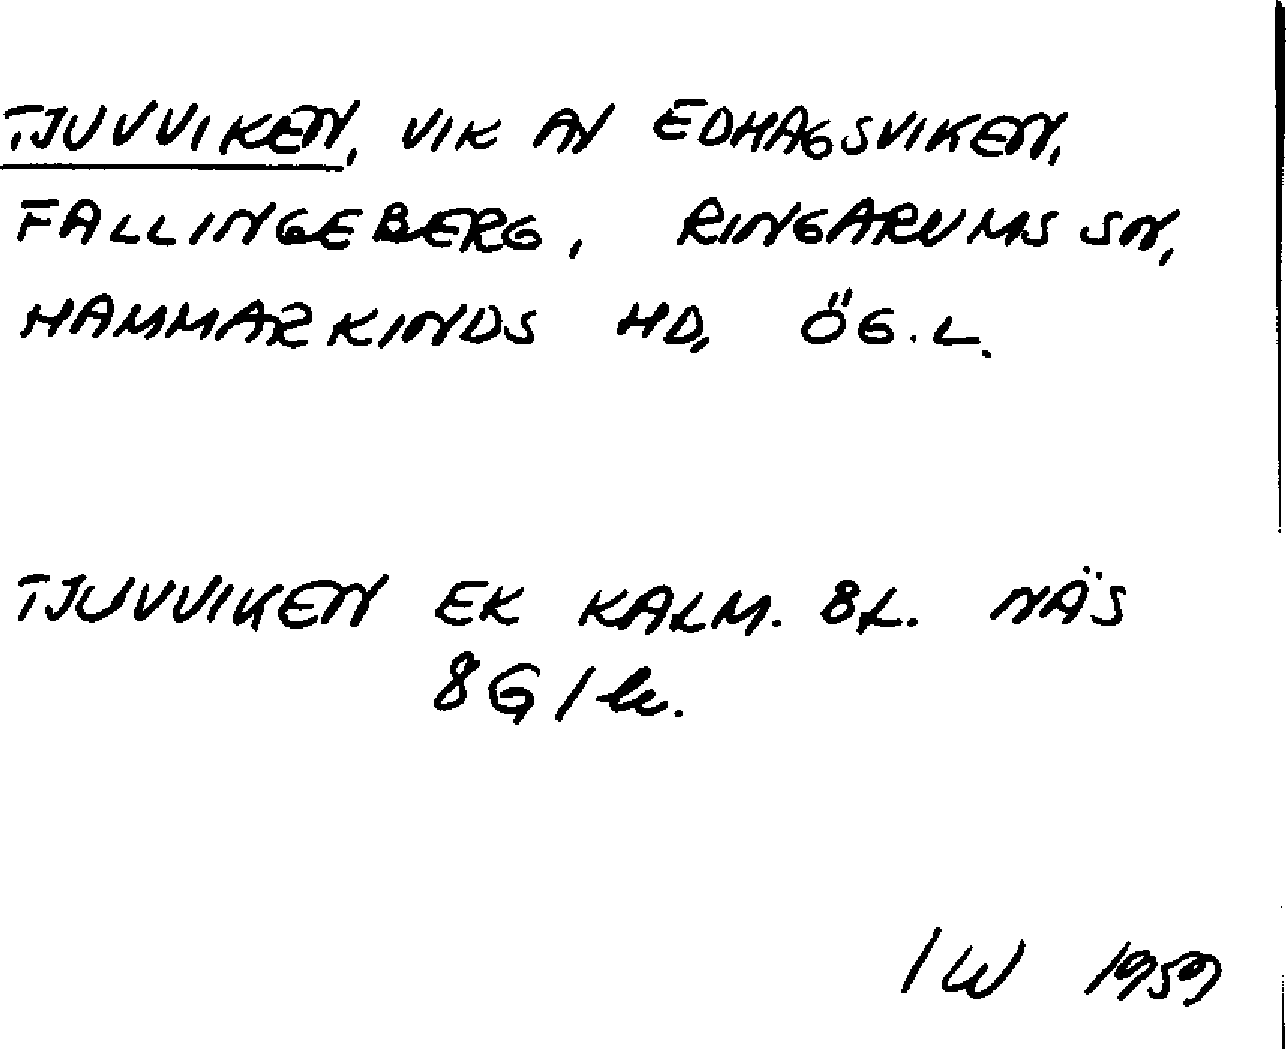 TJUVVIKEN, VIK AV EDHAGSVIKEN,
FALLINGEBERG, RINGARUMS SN,
HAMMARKINDS HD, ÖG.L.
TJUVVIKEN EK KALM. BL. NÄS
8G/
IW 1959